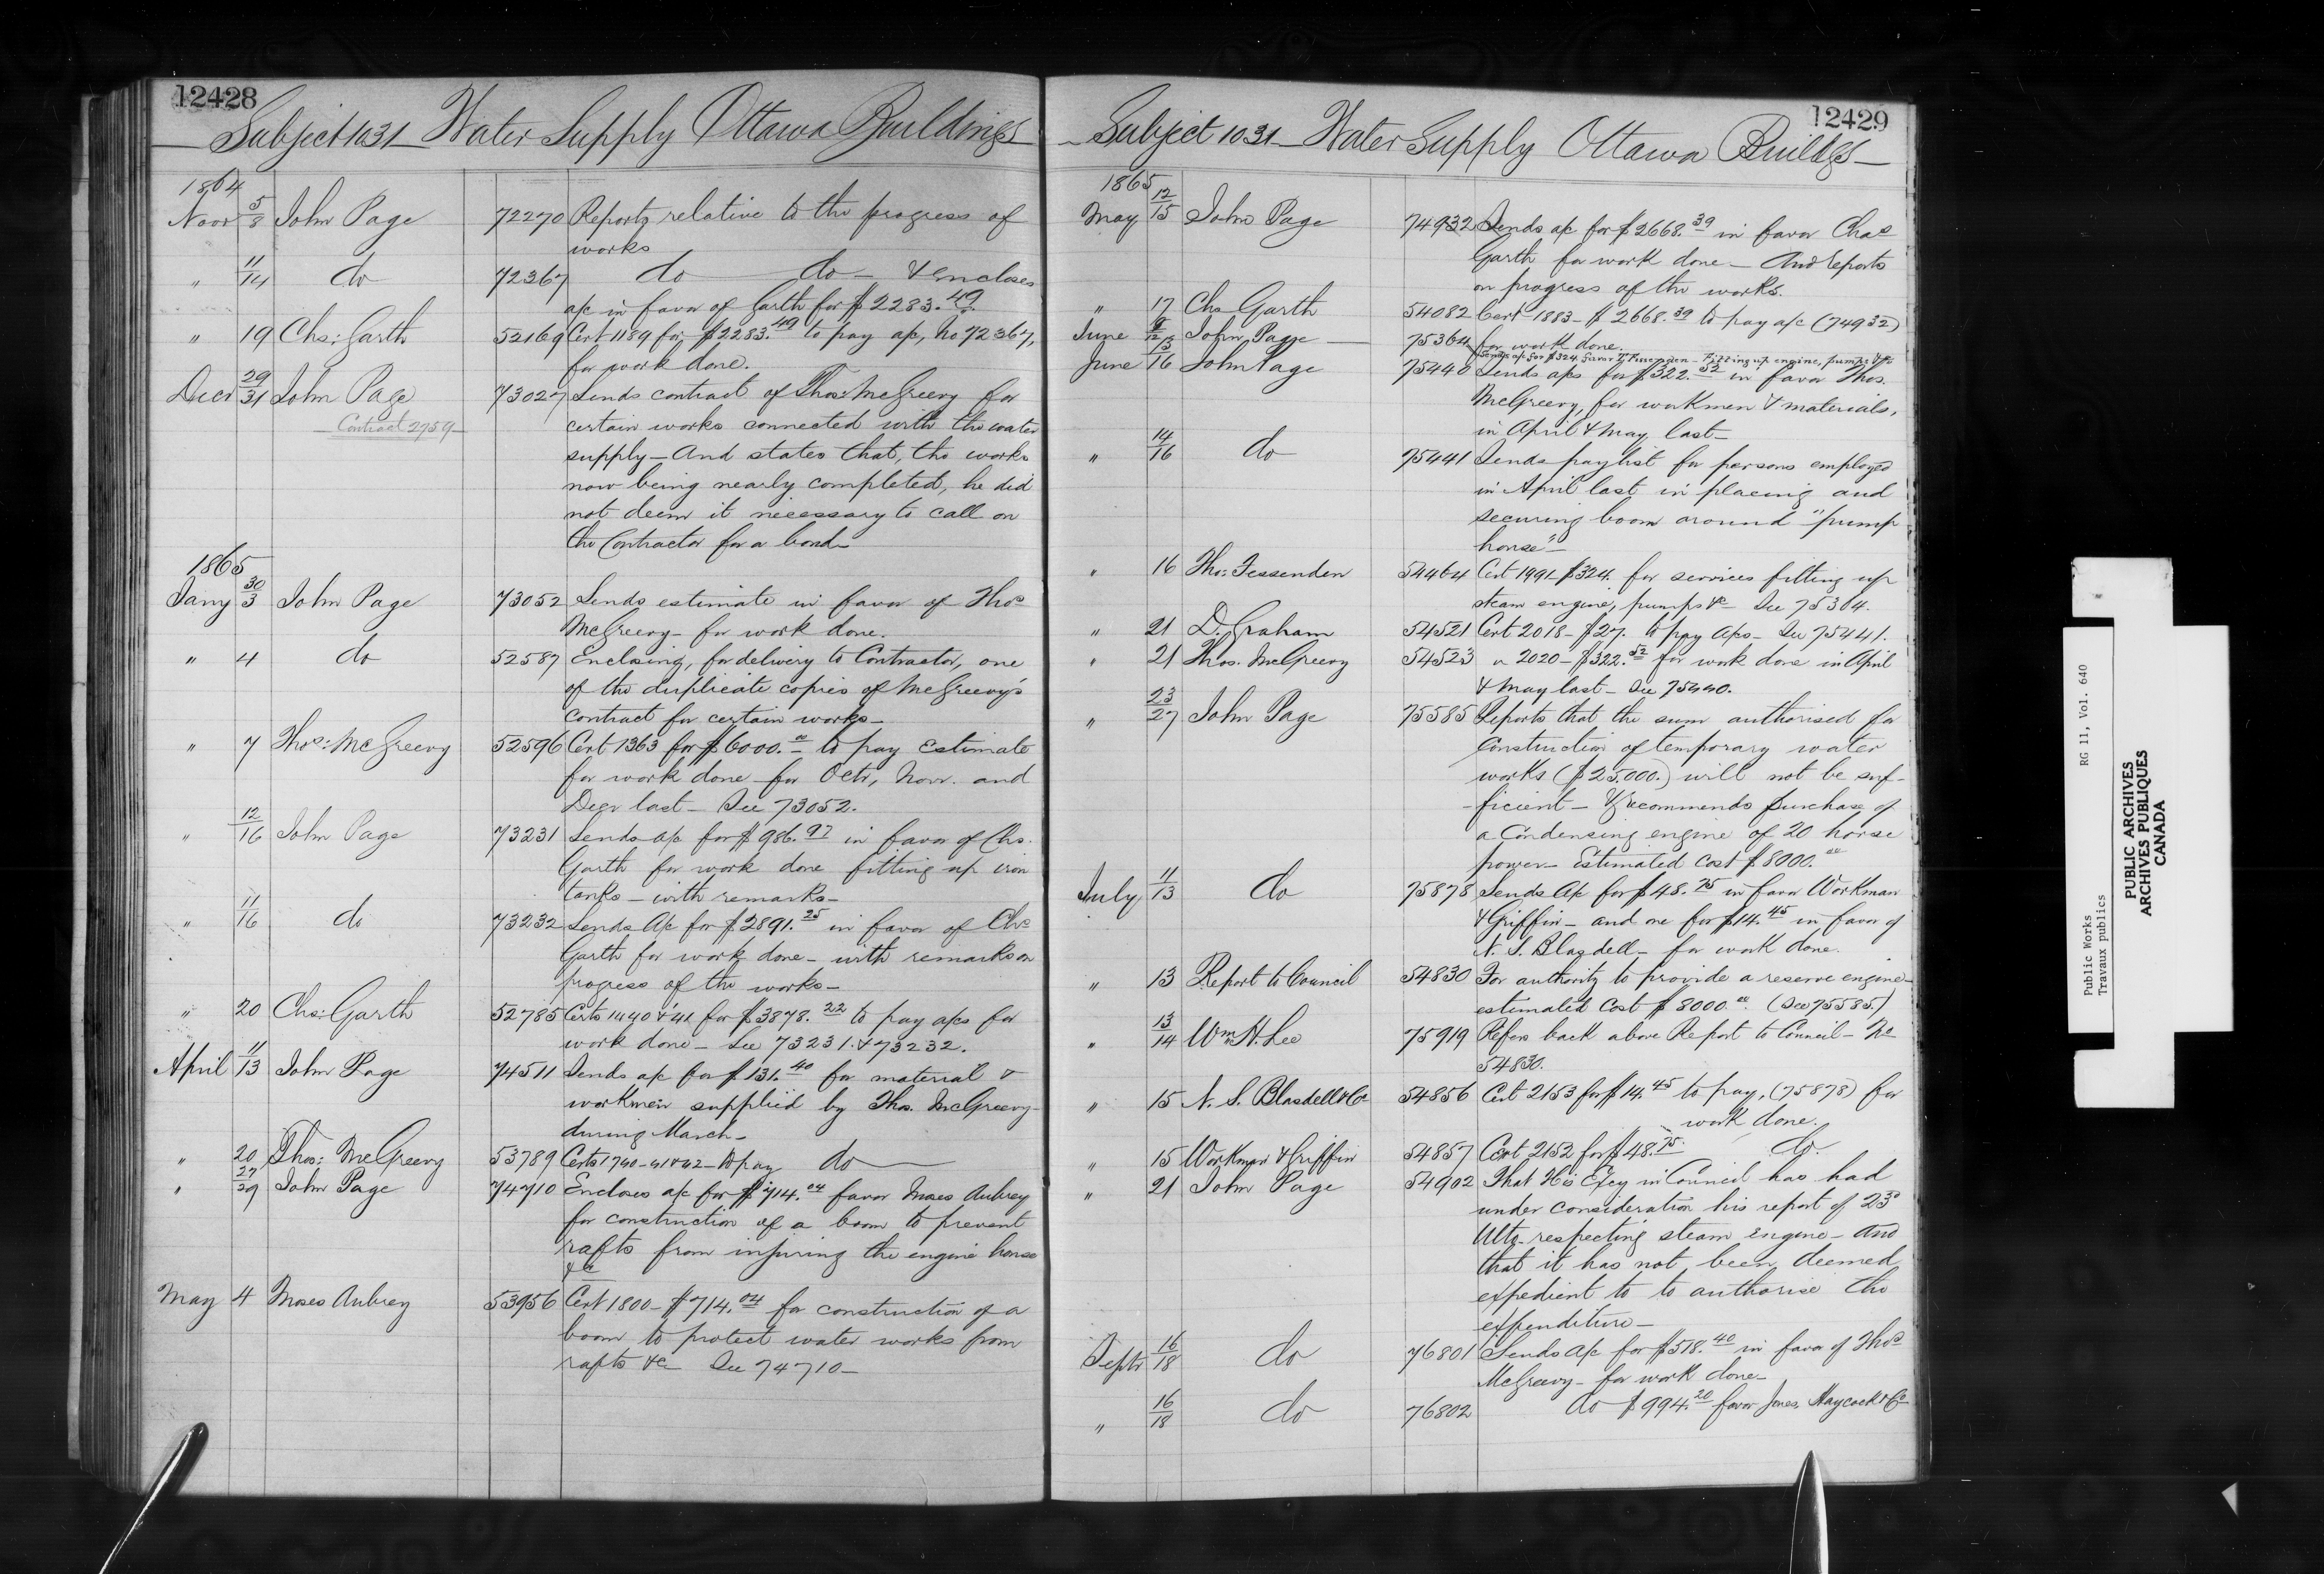 12428
Subject 1031 Water Supply Ottawa Buildings
1864
Novr 5/8 John Page 72270 Reports relative to the progress of
works
" 11/14 do 72367 do do & encloses
a/c in favor of Garth for $2283.49
" 19 Chs: Garth 52169 Cert 1189 for $2283.49 to pay a/c, No 72367,
for work done.
Decr 29/31 John Page 73027 Sends contract of Thos: McGreevy for
Contract 2759
certain works connected with the water
supply – And states that, the works
now being nearly completed, he did
not deem it necessary to call on
the Contractor for a bond –
1865
Jany 30/3 John Page 73052 Sends estimate in favor of Thos
McGreevy – for work done.
" 4 do 52587 Enclosing, for delivery to Contractor, one
of the duplicate copies of McGreevy's
contract for certain works –
" 7 Thos: McGreevy 52596 Cert 1363 for $6000.00 to pay Estimate
for work done for Octr, Novr. and
Decr last – See 73052.
" 12/16 John Page 73231 Sends a/c for $986.97 in favor of Chs.
Garth for work done fitting up iron
tanks – with remarks –
" 11/16 do 73232 Sends A/c for $2891.25 in favor of Chs
Garth for work done – with remarks on
progress of the works –
" 20 Chs: Garth 52785 Certs 1440 & 41 for $3878.22 to pay a/cs for
work done – See 73231. & 73232.
April 11/13 John Page 74511 Sends a/c for $131.40 for material &
workmen supplied by Thos. McGreevy
during March –
" 20 Thos: McGreevy 53789 Certs 1740–41&42 – to pay do
" 27/29 John Page 74710 Encloses a/c for $714.04 favor Moses Aubrey
for construction of a boom to prevent
rafts from injuring the engine house
&c
May 4 Moses Aubrey 53956 Cert 1800 – $714.04 for construction of a
boom to protect water works from
rafts &c See 74710 –
12429
Subject 1031 – Water Supply Ottawa Buildgs –
1865
May 12/15 John Page 74932 Sends a/c for $2668.39 in favor Chas
Garth for work done – And reports
on progress of the works.
" 17 Chs Garth 54082 Cert 1883 – $2668.39 to pay a/c (74932)
for work done.
June 9/12 John Page 75364 Sends a/c for $324 favor T. Fessenden – Fitting up engine, pumps &c
June 13/16 John Page 75440 Sends a/cs for $322.52 in favor Thos.
McGreevy, for workmen & materials,
in April & May last –
" 14/16 do 75441 Sends paylist for persons employed
in April last in placing and
securing boom around "pump
house" –
" 16 Tho: Fessenden 54464 Cert 1991 $324. for services fitting up
steam engine, pumps &c – See 75364.
" 21 D. Graham 54521 Cert 2018 – $27. to pay A/cs – See 75441.
" 21 Thos. McGreevy 54523 " 2020 – $322.52 for work done in April
& May last – See 75440.
" 23/27 John Page 75585 Reports that the sum authorised for
construction of temporary water
works ($25,000.) will not be suf-
-ficient – & recommends purchase of
a condensing engine of 20 horse
power – Estimated Cost $8000.00
July 11/13 do 75878 Sends A/c for $48.75 in favor Workman
& Griffin – and one for $14.45 in favor of
N. S. Blasdell – for work done.
" 13 Report to Council 54830 For authority to provide a reserve engine –
estimated Cost $8000.00. (See 75585.)
" 13/14 Wm. H. Lee 75919 Refers back above Report to Council – No
54830.
" 15 N. S. Blasdell & Co 54856 Cert 2153 for $14.45 to pay, (75878) for
work done.
" 15 Workman & Griffin 54857 Cert 2152 for $48.75. do.
" 21 John Page 54902 That His Excy in Council has had
under consideration his report of 23d
Ulto. respecting steam engine – and
that it has not been deemed
expedient to to authorise the
expenditure –
Septr 16/18 do 76801 Sends A/c for $518.40 in favor of Thos
McGreevy – for work done –
" 16/18 do 76802 do $994.20 favor Jones, Haycock & Co
Public Works RG 11, Vol. 640
Travaux publics
PUBLIC ARCHIVES
ARCHIVES PUBLIQUES
CANADA